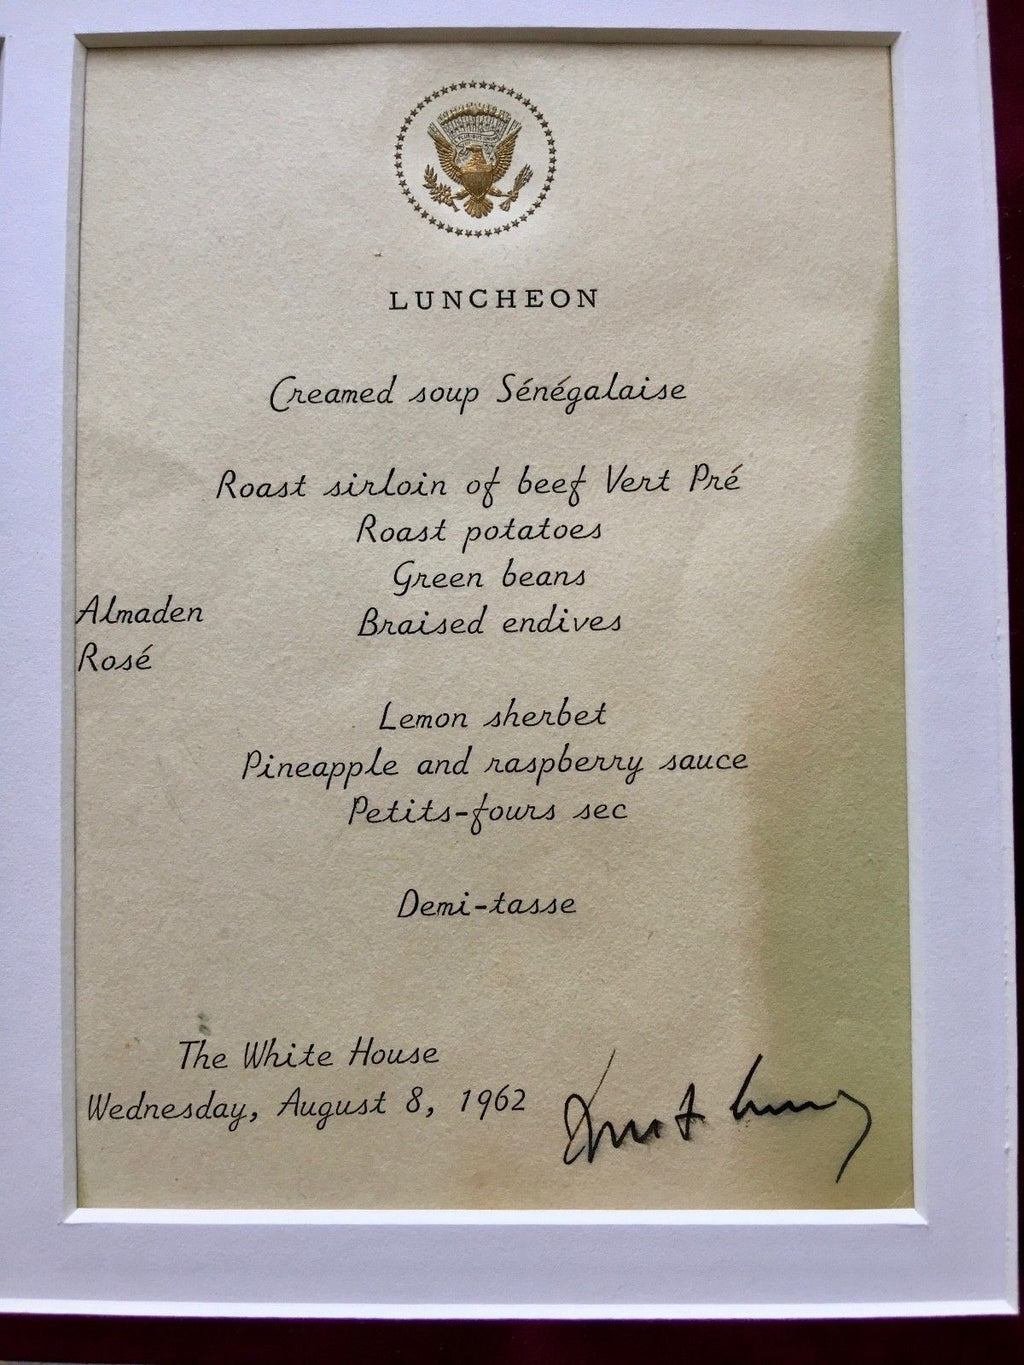 LUNCHEON
Creamed soup Sénégalaise
Roast sirloin of beef Vert Pré
Roast potatoes
Green beans
Almaden
Rosé
Braised endives
Lemon sherbet
Pineapple and raspberry sauce
Petits-fours sec
Demi-tasse
The White House
Wednesday, August 8, 1962